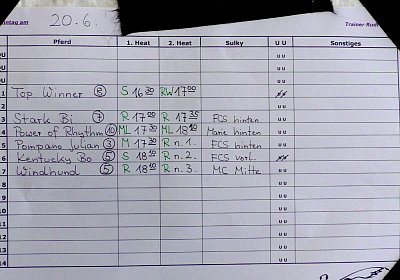 nntag am 20.6. Trainer Rud
Pferd 1. Heat 2. Heat Sulky U U Sonstiges
U U U
U U U
U U U
1 Top Winner 8 S 16 30 RW 17 00
2 U U
3 Stark Bi 7 R 17 00 R 17 35 FCS hinten U U
4 Power of Rhythm 10 ML 17 30 ML 18 10 Marie hinten U U
5 Pompano Julian 3 M 17 30 R n. 1. FCS hinten U U
6 Kentucky Bo 5 S 18 10 R n. 2. FCS vorl.
7 Windhund 5 R 18 10 R n. 3. MC Mitte U U
8 U U
9 U U
10 U U
11 U U
12 U U
13 U U
14 U U